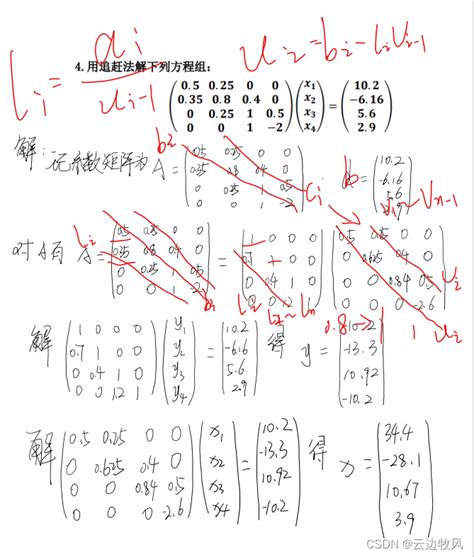 l_i = a_i / u_{i-1}
u_i = b_i - l_i v_{i-1}
4.用追赶法解下列方程组:
(0.5 0.25 0 0; 0.35 0.8 0.4 0; 0 0.25 1 0.5; 0 0 1 -2) (x₁; x₂; x₃; x₄) = (10.2; -6.16; 5.6; 2.9)
解:记系数矩阵为 A = (0.5 0.25 0 0; 0.35 0.8 0.4 0; 0 0.25 1 0.5; 0 0 1 -2) b = (10.2; -6.16; 5.6; 2.9)
b_i
c_i
v_{n-1}
对A有 A = (0.5 0.25 0 0; 0.35 0.8 0.4 0; 0 0.25 1 0.5; 0 0 1 -2) = (1 0 0 0; 0.7 1 0 0; 0 0.4 1 0; 0 0 1.2 1) (0.5 0.25 0 0; 0 0.625 0.4 0; 0 0 0.84 0.5; 0 0 0 -2.6)
l₂~l_n
u_i
解 (1 0 0 0; 0.7 1 0 0; 0 0.4 1 0; 0 0 1.2 1) (y₁; y₂; y₃; y₄) = (10.2; -6.16; 5.6; 2.9) 得 y = (10.2; -13.3; 10.92; -10.2)
解 (0.5 0.25 0 0; 0 0.625 0.4 0; 0 0 0.84 0.5; 0 0 0 -2.6) (x₁; x₂; x₃; x₄) = (10.2; -13.3; 10.92; -10.2) 得 x = (34.4; -28.1; 10.67; 3.9)
CSDN @云边牧风